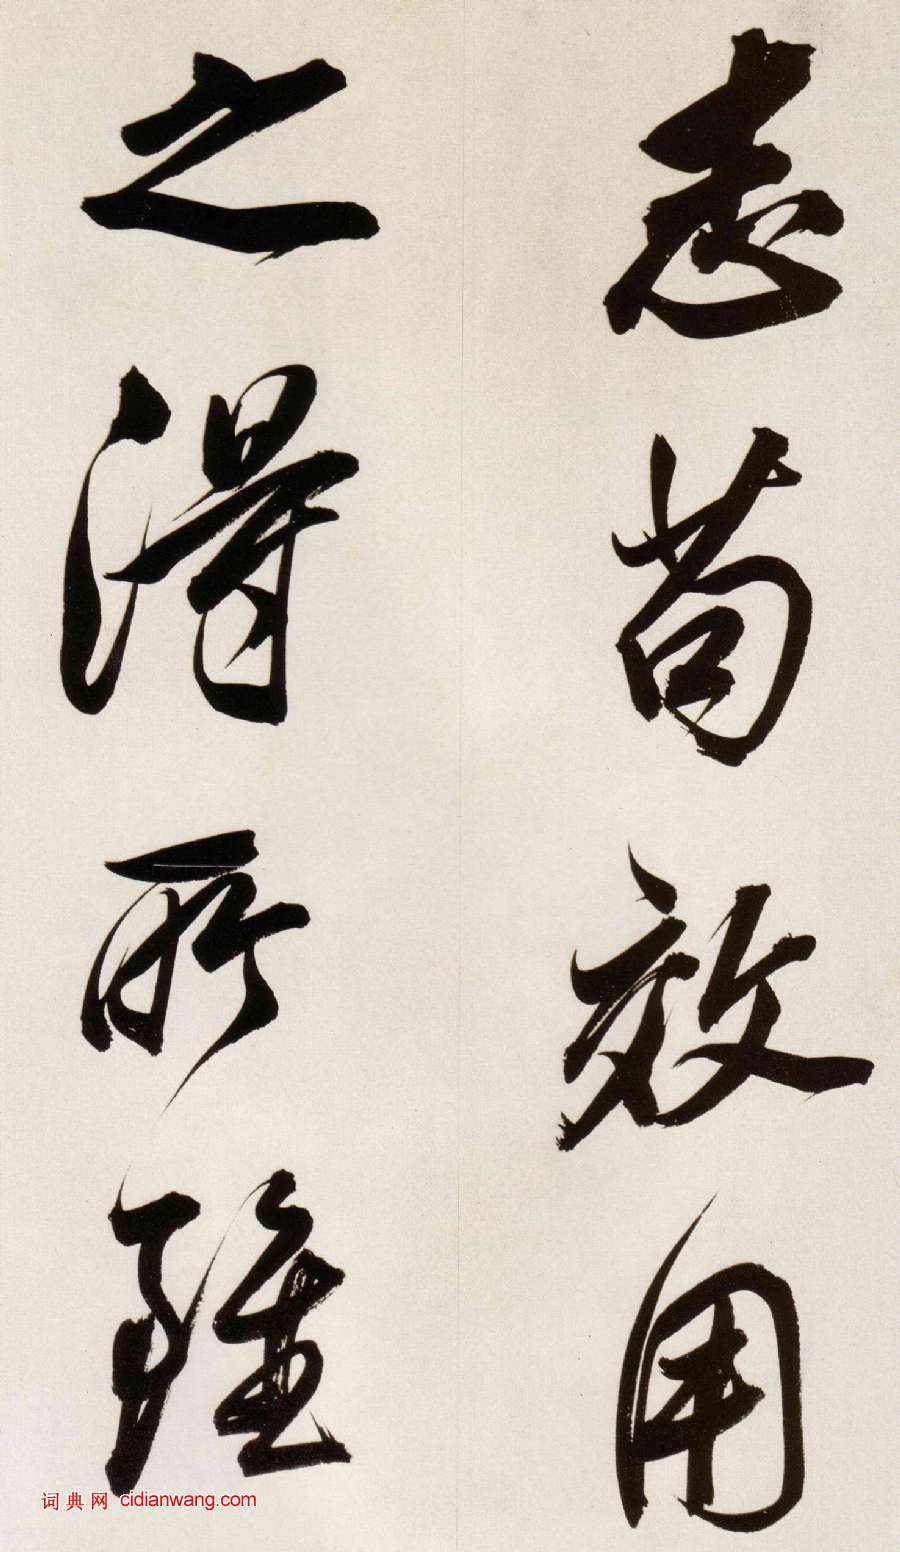 志苟效用
之得所雖
词典网 cidianwang.com